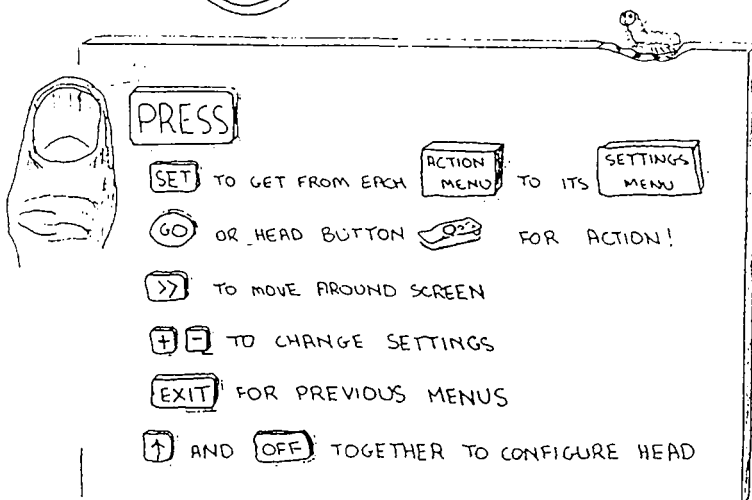 PRESS
SET TO GET FROM EACH ACTION MENU TO ITS SETTINGS MENU
GO OR HEAD BUTTON FOR ACTION!
>> TO MOVE AROUND SCREEN
+ - TO CHANGE SETTINGS
EXIT FOR PREVIOUS MENUS
↑ AND OFF TOGETHER TO CONFIGURE HEAD